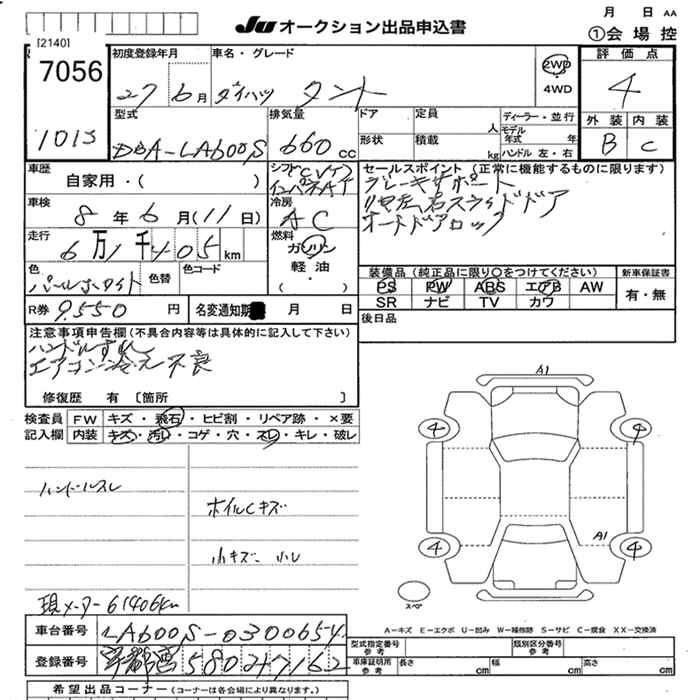 月 日 AA
Ju オークション出品申込書 ①会場控
[2140]
7056
1015
初度登録年月 車名・グレード
27 6月 ダイハツ タント
2WD
4WD
評価点
4
外装 内装
B C
型式 排気量 ドア 定員 人
DBA-LA600S 660cc
形状 積載 kg
ディーラー・並行
モデル年式 年
ハンドル 左・右
車歴
自家用・( )
シフト CVT
インパネAT
車検
8年6月(11日)
冷房
AC
走行
6万1千405km
燃料
ガソリン
軽油・
( )
セールスポイント(正常に機能するものに限ります)
ブレーキサポート
リヤ左右スライドドア
オートドアロック
色 色替 色コード
パールホワイト
装備品(純正品に限り○をつけてください) 新車保証書
PS PW ABS エアB AW 有・無
SR ナビ TV カワ
R券 9,550円 名変通知期 月 日
後日品
注意事項申告欄(不具合内容等は具体的に記入して下さい)
ハンドルすれ
エアコン冷え不良
修復歴 有〔箇所 〕
検査員 FW キズ・飛石・ヒビ割・リペア跡・×要
記入欄 内装 キズ・汚れ・コゲ・穴・スレ・キレ・破レ
ハンドルスレ
ホイルCキズ
小キズ 小レ
現メーター61406km
A1
4 4
A1
4 4
スペア
A-キズ E-エクボ U-凹み W-補修跡 S-サビ C-腐食 XX-交換済
車台番号 LA600S-0300654
登録番号 宇都宮580 7162
型式指定番号 参考 類別区分番号 参考
車庫証明用 参考 長さ cm 幅 cm 高さ cm
希望出品コーナー(コーナーは各会場により異なります。)